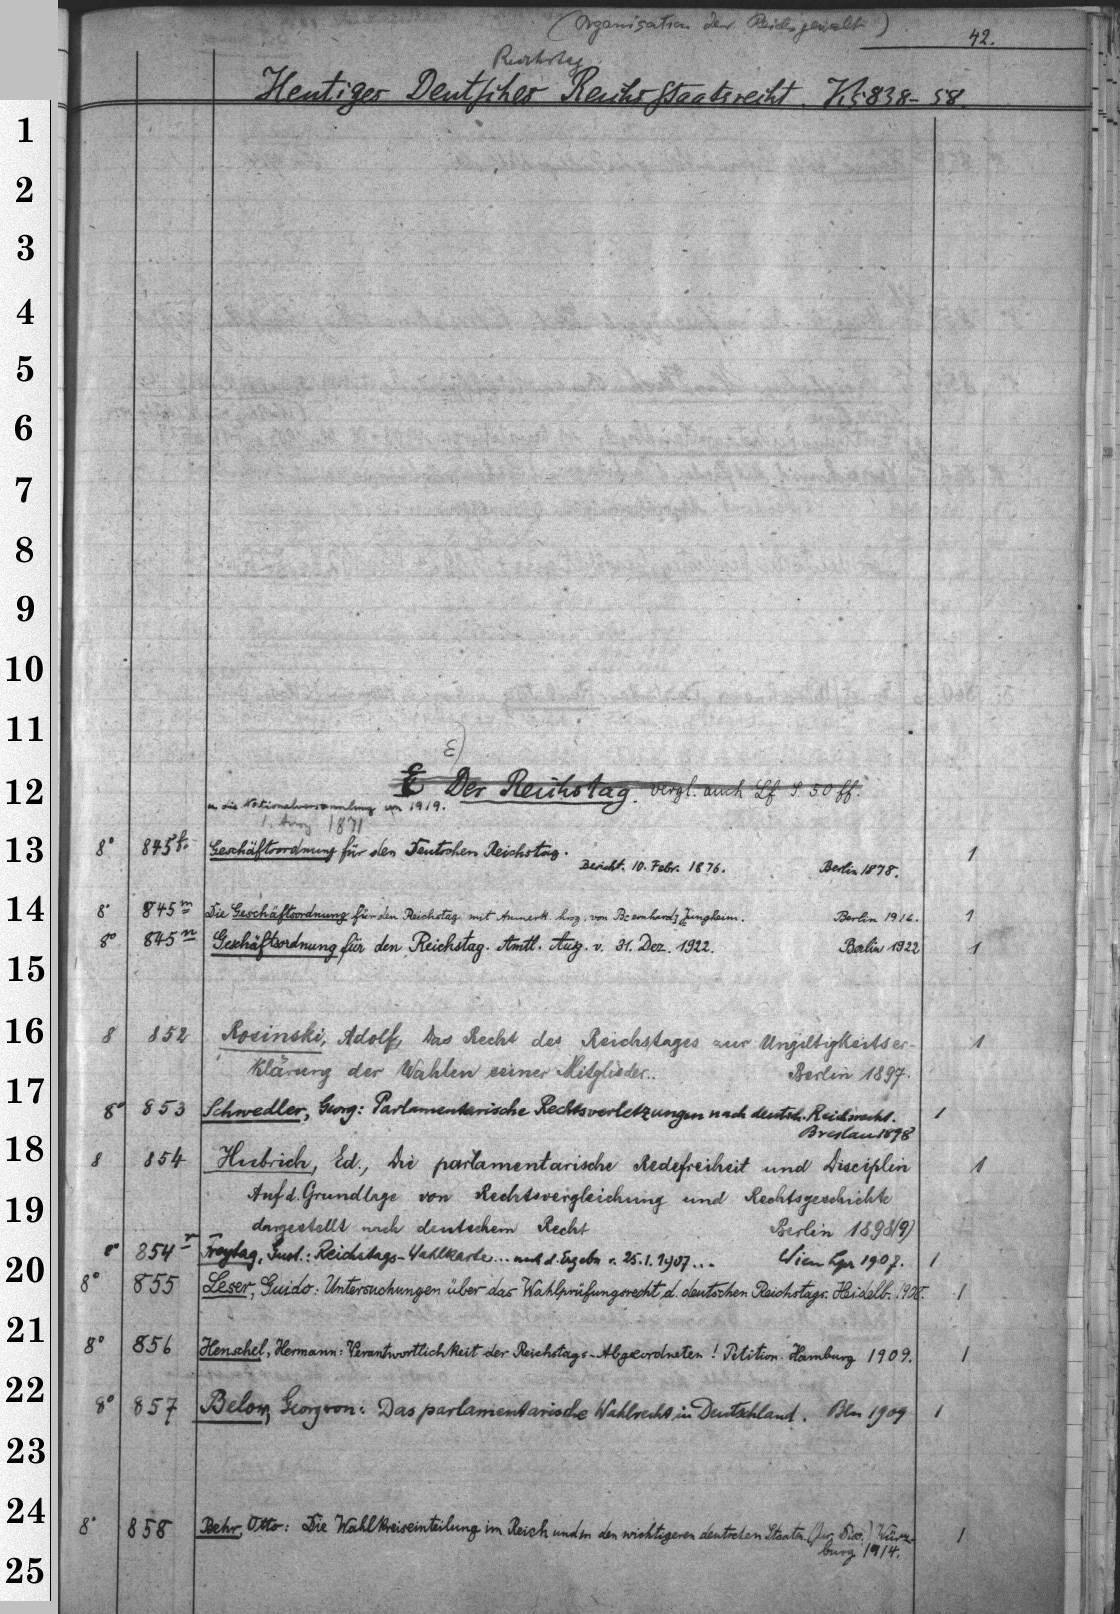 (Organisation der Reichsgewalt)
42.
Reichstag
Heutiges Deutsches Reichsstaatsrecht. Kf 838-58.
1
2
3
4
5
6
7
8
9
10
11
ε)
12 E Der Reichstag. vergl. auch Lf S. 50 ff.
u. die Nationalversammlung von 1919.
1. Aug 1871
13 8° 845 Geschäftsordnung für den Deutschen Reichstag. 1
10. Febr. 1876. Berlin 1878.
14 8° 845m Die Geschäftsordnung für den Reichstag mit Anmerk. hrsg. von Bernhard Jungheim. Berlin 1916. 1
8° 845n Geschäftsordnung für den Reichstag. Amtl. Ausg. v. 31. Dez. 1922. Berlin 1922 1
15
16 8 852 Rosinski, Adolf, Das Recht des Reichstages zur Ungiltigkeitser- 1
klärung der Wahlen seiner Mitglieder.. Berlin 1897.
17 8° 853 Schwedler, Georg: Parlamentarische Rechtsverletzungen nach deutsch. Reichsrecht. 1
Breslau 1898
18 8 854 Hubrich, Ed., Die parlamentarische Redefreiheit und Disciplin 1
Auf d. Grundlage von Rechtsvergleichung und Rechtsgeschichte
19 dargestellt nach deutschem Recht Berlin 1898(9)
8° 854r Freytag, Gust.: Reichstags-Wahlkarte... nach d. Ergebn. v. 25.1.1907... Wien Lpz 1907. 1
20 8° 855 Leser, Guido: Untersuchungen über das Wahlprüfungsrecht d. deutschen Reichstags. Heidelb. 1908. 1
21 8° 856 Henschel, Hermann: Verantwortlichkeit der Reichstags-Abgeordneten! Petition. Hamburg 1909. 1
22 8° 857 Below, Georg von: Das parlamentarische Wahlrecht in Deutschland. Bln 1909 1
23
24 8° 858 Behr, Otto: Die Wahlkreiseinteilung im Reich und in den wichtigeren deutschen Staaten (Jur. Diss.) Würz- 1
burg 1914.
25